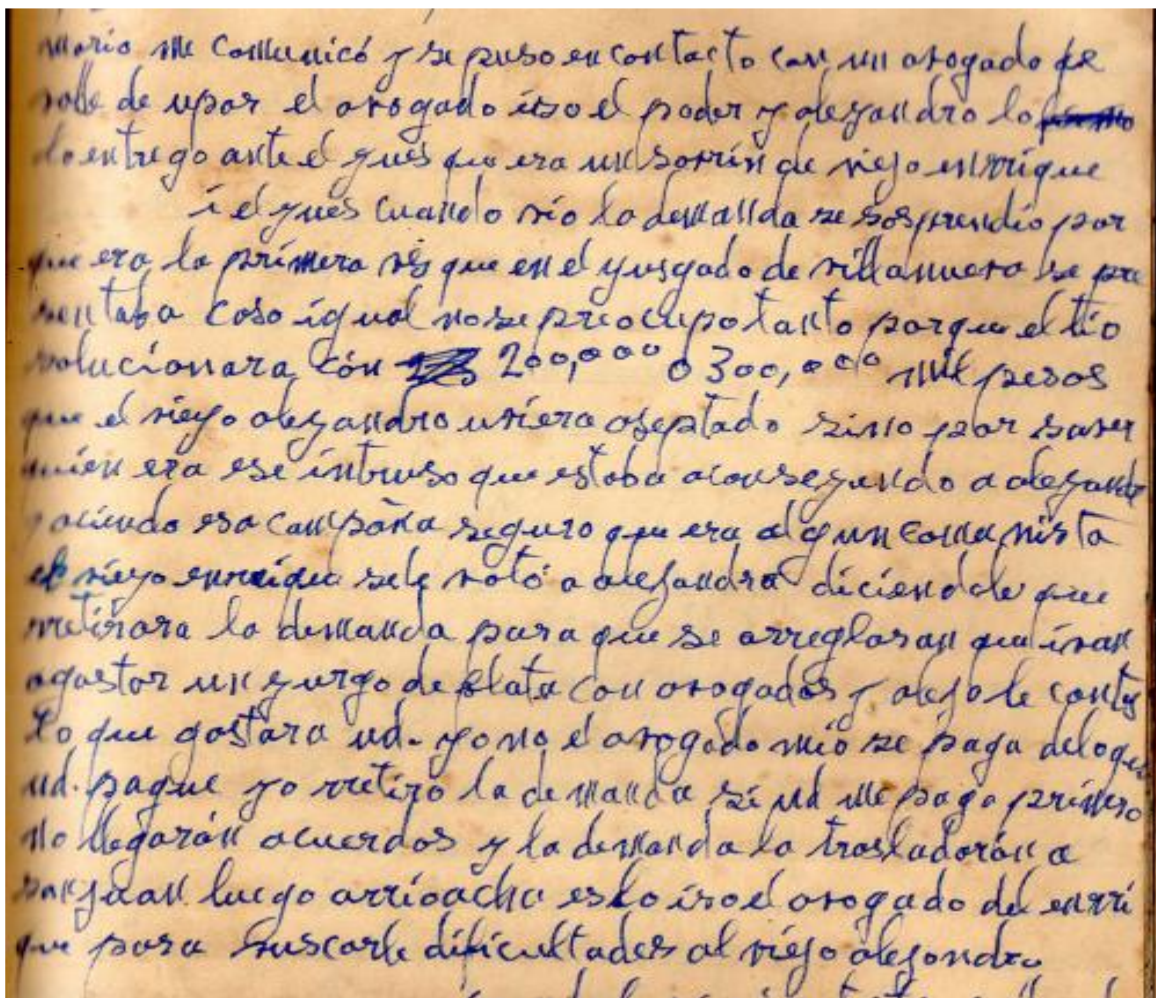 mario me comunicó y se puso en contacto con un avogado de
valle de upar el avogado iso el poder y alejandro lo
lo entrego ante el jues que era un sovrin de viejo enrrique
i el jues cuando vio la demanda se sosprendio por
que era la primera ves que en el yusgado de villanueva se pre
sentaba caso igual no se preocupo tanto porque el lio
solucionara con 200,000 o 300,000 mil pesos
que el viejo alejandro uviera aseptado sino por saver
quien era ese intruso que estaba aconsejando a alejandr
y aciendo esa campaña seguro que era algun comunista
el viejo enrrique sele votó a alejandra diciendole que
rretirara la demanda para que se arreglaran que ivan
agastar un jurgo de plata con avogados y alejo le contes
to que gastara ud. yo no el avogado mio se paga deloque
ud. pague yo rretiro la demanda si ud me paga primero
no llegarón acuerdos y la demanda la trasladarón a
sanjuan luego arrioacha esto iso el avogado de enrri
que para vuscarle dificultades al viejo alejandro